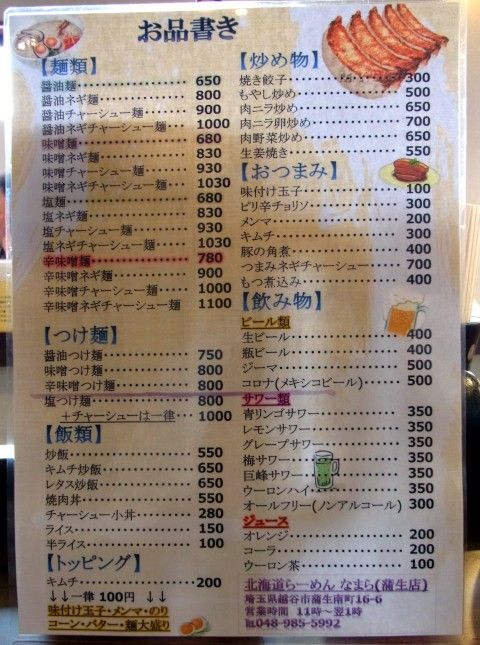 お品書き
【麺類】
醤油麺 650
醤油ネギ麺 800
醤油チャーシュー麺 900
醤油ネギチャーシュー麺 1000
味噌麺 680
味噌ネギ麺 830
味噌チャーシュー麺 930
味噌ネギチャーシュー麺 1030
塩麺 680
塩ネギ麺 830
塩チャーシュー麺 930
塩ネギチャーシュー麺 1030
辛味噌麺 780
辛味噌ネギ麺 900
辛味噌チャーシュー麺 1000
辛味噌ネギチャーシュー麺 1100
【つけ麺】
醤油つけ麺 750
味噌つけ麺 800
辛味噌つけ麺 800
塩つけ麺 800
+チャーシューは一律 1000
【飯類】
炒飯 550
キムチ炒飯 650
レタス炒飯 650
焼肉丼 550
チャーシュー小丼 280
ライス 150
半ライス 100
【トッピング】
キムチ 200
↓↓一律 100円 ↓↓
味付け玉子・メンマ・のり
コーン・バター・麺大盛り
【炒め物】
焼き餃子 300
もやし炒め 500
肉ニラ炒め 650
肉ニラ卵炒め 700
肉野菜炒め 650
生姜焼き 550
【おつまみ】
味付け玉子 100
ピリ辛チョリソ 300
メンマ 200
キムチ 300
豚の角煮 400
つまみネギチャーシュー 700
もつ煮込み 400
【飲み物】
ビール類
生ビール 400
瓶ビール 400
ジーマ 500
コロナ(メキシコビール) 500
サワー類
青リンゴサワー 350
レモンサワー 350
グレープサワー 350
梅サワー 350
巨峰サワー 350
ウーロンハイ 350
オールフリー(ノンアルコール) 300
ジュース
オレンジ 200
コーラ 200
ウーロン茶 100
北海道らーめん なまら(蒲生店)
埼玉県越谷市蒲生南町16-6
営業時間 11時～翌1時
℡048-985-5992